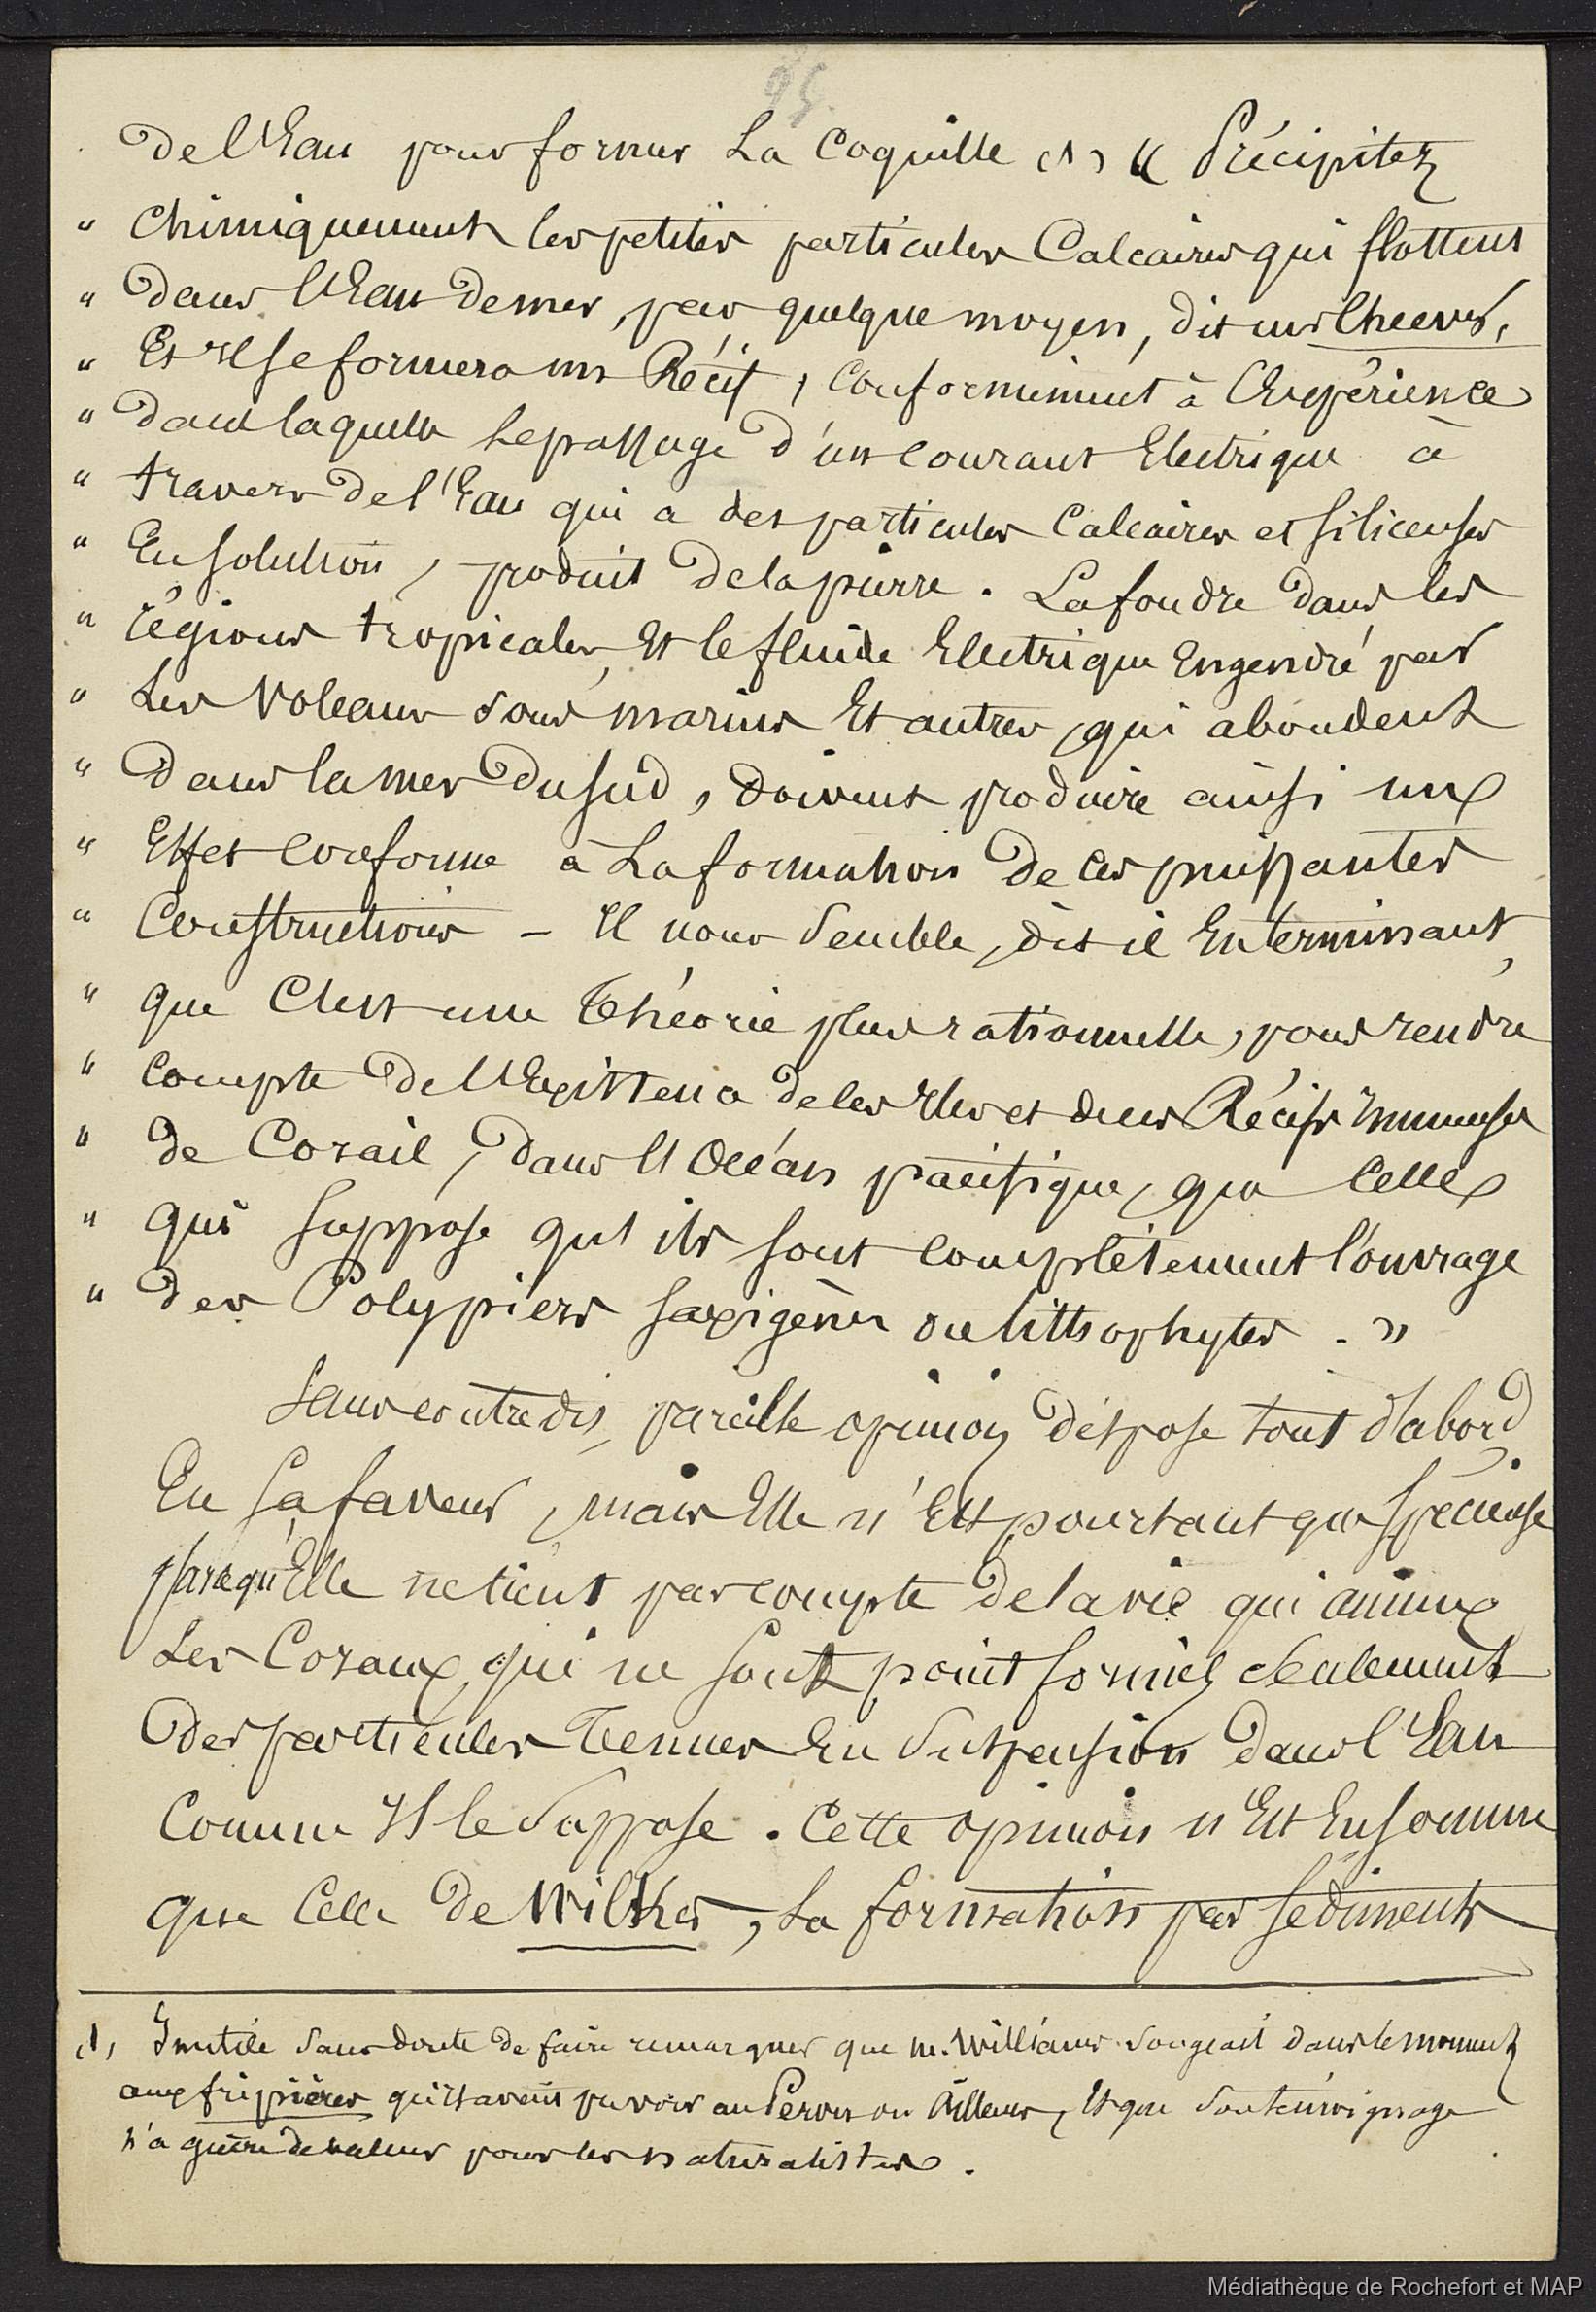 95.
De l'Eau pour former La Coquille (1) « Précipitez
" Chimiquement les petites particules Calcaires qui flottent
" Dans l'Eau De mer, par quelque moyen, dit mr Cheever,
" Et il se formera un Récif, conformément à l'expérience
" Dans laquelle Le passage D'un courant Electrique à
" travers De l'Eau qui a des particules Calcaires et siliceuses
" En solution, produit De la pierre. La foudre Dans les
" régions tropicales, Et le fluide Electrique Engendré par
" Les Volcans sous marins Et autres, qui abondent
" Dans la mer Du sud, Doivent produire ainsi un
" Effet conforme à La formation De ces puissantes
" Constructions – Il nous semble, dit il En terminant,
" que C'est une Théorie plus rationnelle, pour rendre
" Compte De l'Existence De ces Iles et de ces Récifs immenses
" de Corail, Dans l'Océan pacifique, que Celle
" qui suppose qu'ils sont complètement l'ouvrage
" Des Polypiers saxigènes ou lithophytes. »
Sans contredit, pareille opinion Dispose tout d'abord
En sa faveur, mais Elle n'Est pourtant que spécieuse
parce qu'Elle ne tient pas compte De la vie qui anime
Les Coraux, qui ne sont point formés seulement
Des particules Tenues En suspension Dans l'Eau
Comme Il le suppose. Cette opinion n'Est En somme
que Celle De Wilkes, La formation par sédiments
(1) Inutile sans doute De faire remarquer que m. Williams songeait Dans le moment
aux fripières qu'il avait pu voir au Pérou ou Ailleurs, Et que son témoignage
n'a guère De valeur pour les naturalistes.
Médiathèque de Rochefort et MAP